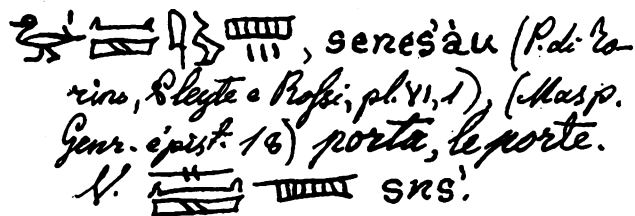 , seneśàu (P. di To-
rino, Pleyte e Rossi, pl. VI, 1), (Masp.
Genr. épist. 18) porta, le porte.
V. snś.